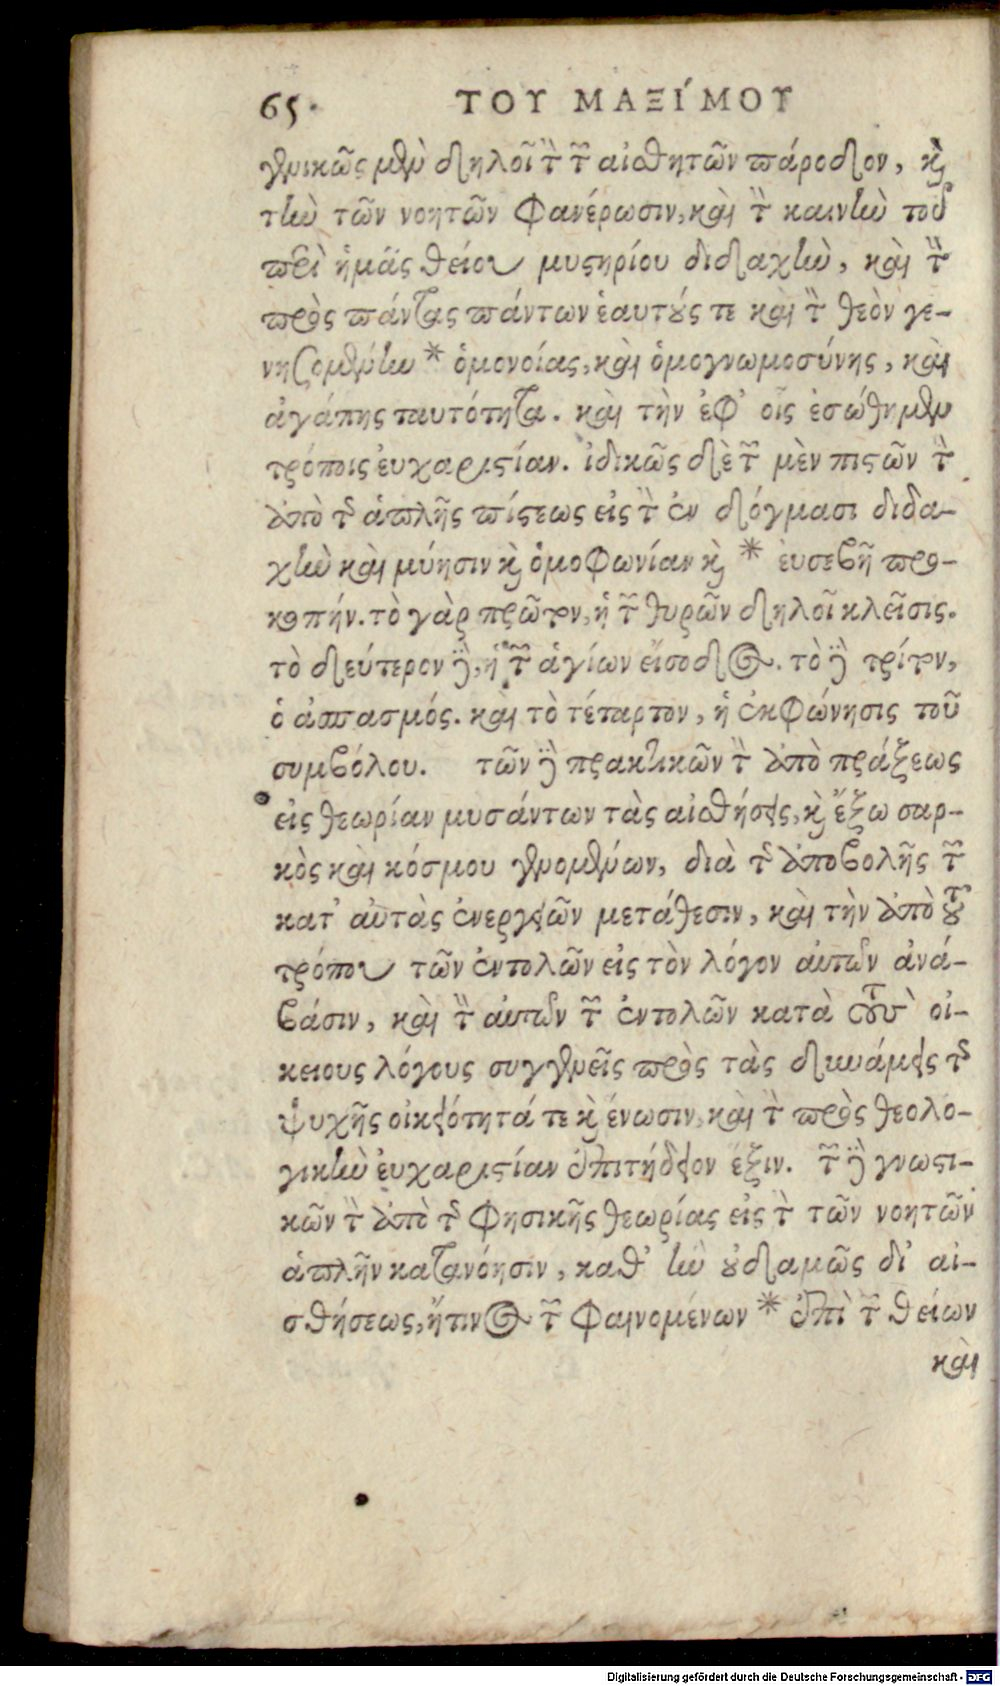 65. ΤΟΥ ΜΑΞΊΜΟΥ
γενικῶς μὲν δηλοῖ τὴν τῶν αἰσθητῶν πάροδον, καὶ
τὴν τῶν νοητῶν φανέρωσιν, καὶ τὴν καινὴν τοῦ
περὶ ἡμᾶς θείου μυστηρίου διδαχὴν, καὶ τὴν
πρὸς πάντας πάντων ἑαυτούς τε καὶ τὸν θεὸν γε-
νησομένην * ὁμονοίας, καὶ ὁμογνωμοσύνης, καὶ
ἀγάπης ταυτότητα. καὶ τὴν ἐφ' οἷς ἐσώθημεν
τρόποις ἐυχαριστίαν. ἰδικῶς δὲ τῶν μὲν πιστῶν τὴν
ἀπὸ τῆς ἁπλῆς πίστεως εἰς τὴν ἐν δόγμασι διδα-
χὴν καὶ μύησιν καὶ ὁμοφωνίαν καὶ * ἐυσεβῆ προ-
κοπήν. τὸ γὰρ πρῶτον, ἡ τῶν θυρῶν δηλοῖ κλεῖσις.
τὸ δεύτερον δὲ, ἡ τῶν ἁγίων εἴσοδος. τὸ δὲ τρίτον,
ὁ ἀσπασμός. καὶ τὸ τέταρτον, ἡ ἐκφώνησις τοῦ
συμβόλου. τῶν δὲ πρακτικῶν τὴν ἀπὸ πράξεως
εἰς θεωρίαν μυσάντων τὰς αἰσθήσεις, καὶ ἔξω σαρ-
κὸς καὶ κόσμου γενομένων, διὰ τῆς ἀποβολῆς τῶν
κατ' αὐτὰς ἐνεργειῶν μετάθεσιν, καὶ τὴν ἀπὸ τοῦ
τρόπου τῶν ἐντολῶν εἰς τὸν λόγον αὐτῶν ἀνά-
βάσιν, καὶ τὴν αὐτῶν τῶν ἐντολῶν κατὰ τοὺς οἰ-
κειους λόγους συγγενεῖς πρὸς τὰς δυνάμεις τῆς
ψυχῆς οἰκειότητά τε καὶ ἕνωσιν, καὶ τὴν πρὸς θεολο-
γικὴν ἐυχαριστίαν ἐπιτήδειον ἕξιν. τῶν δὲ γνωστι-
κῶν τὴν ἀπὸ τῆς φησικῆς θεωρίας εἰς τὴν τῶν νοητῶν
ἁπλῆν κατανόησιν, καθ' ἣν οὐδαμῶς δι' αἰ-
σθήσεως, ἤτινος τῶν φαινομένων * ἐπὶ τῶν θείων
καὶ
Digitalisierung gefördert durch die Deutsche Forschungsgemeinschaft - DFG